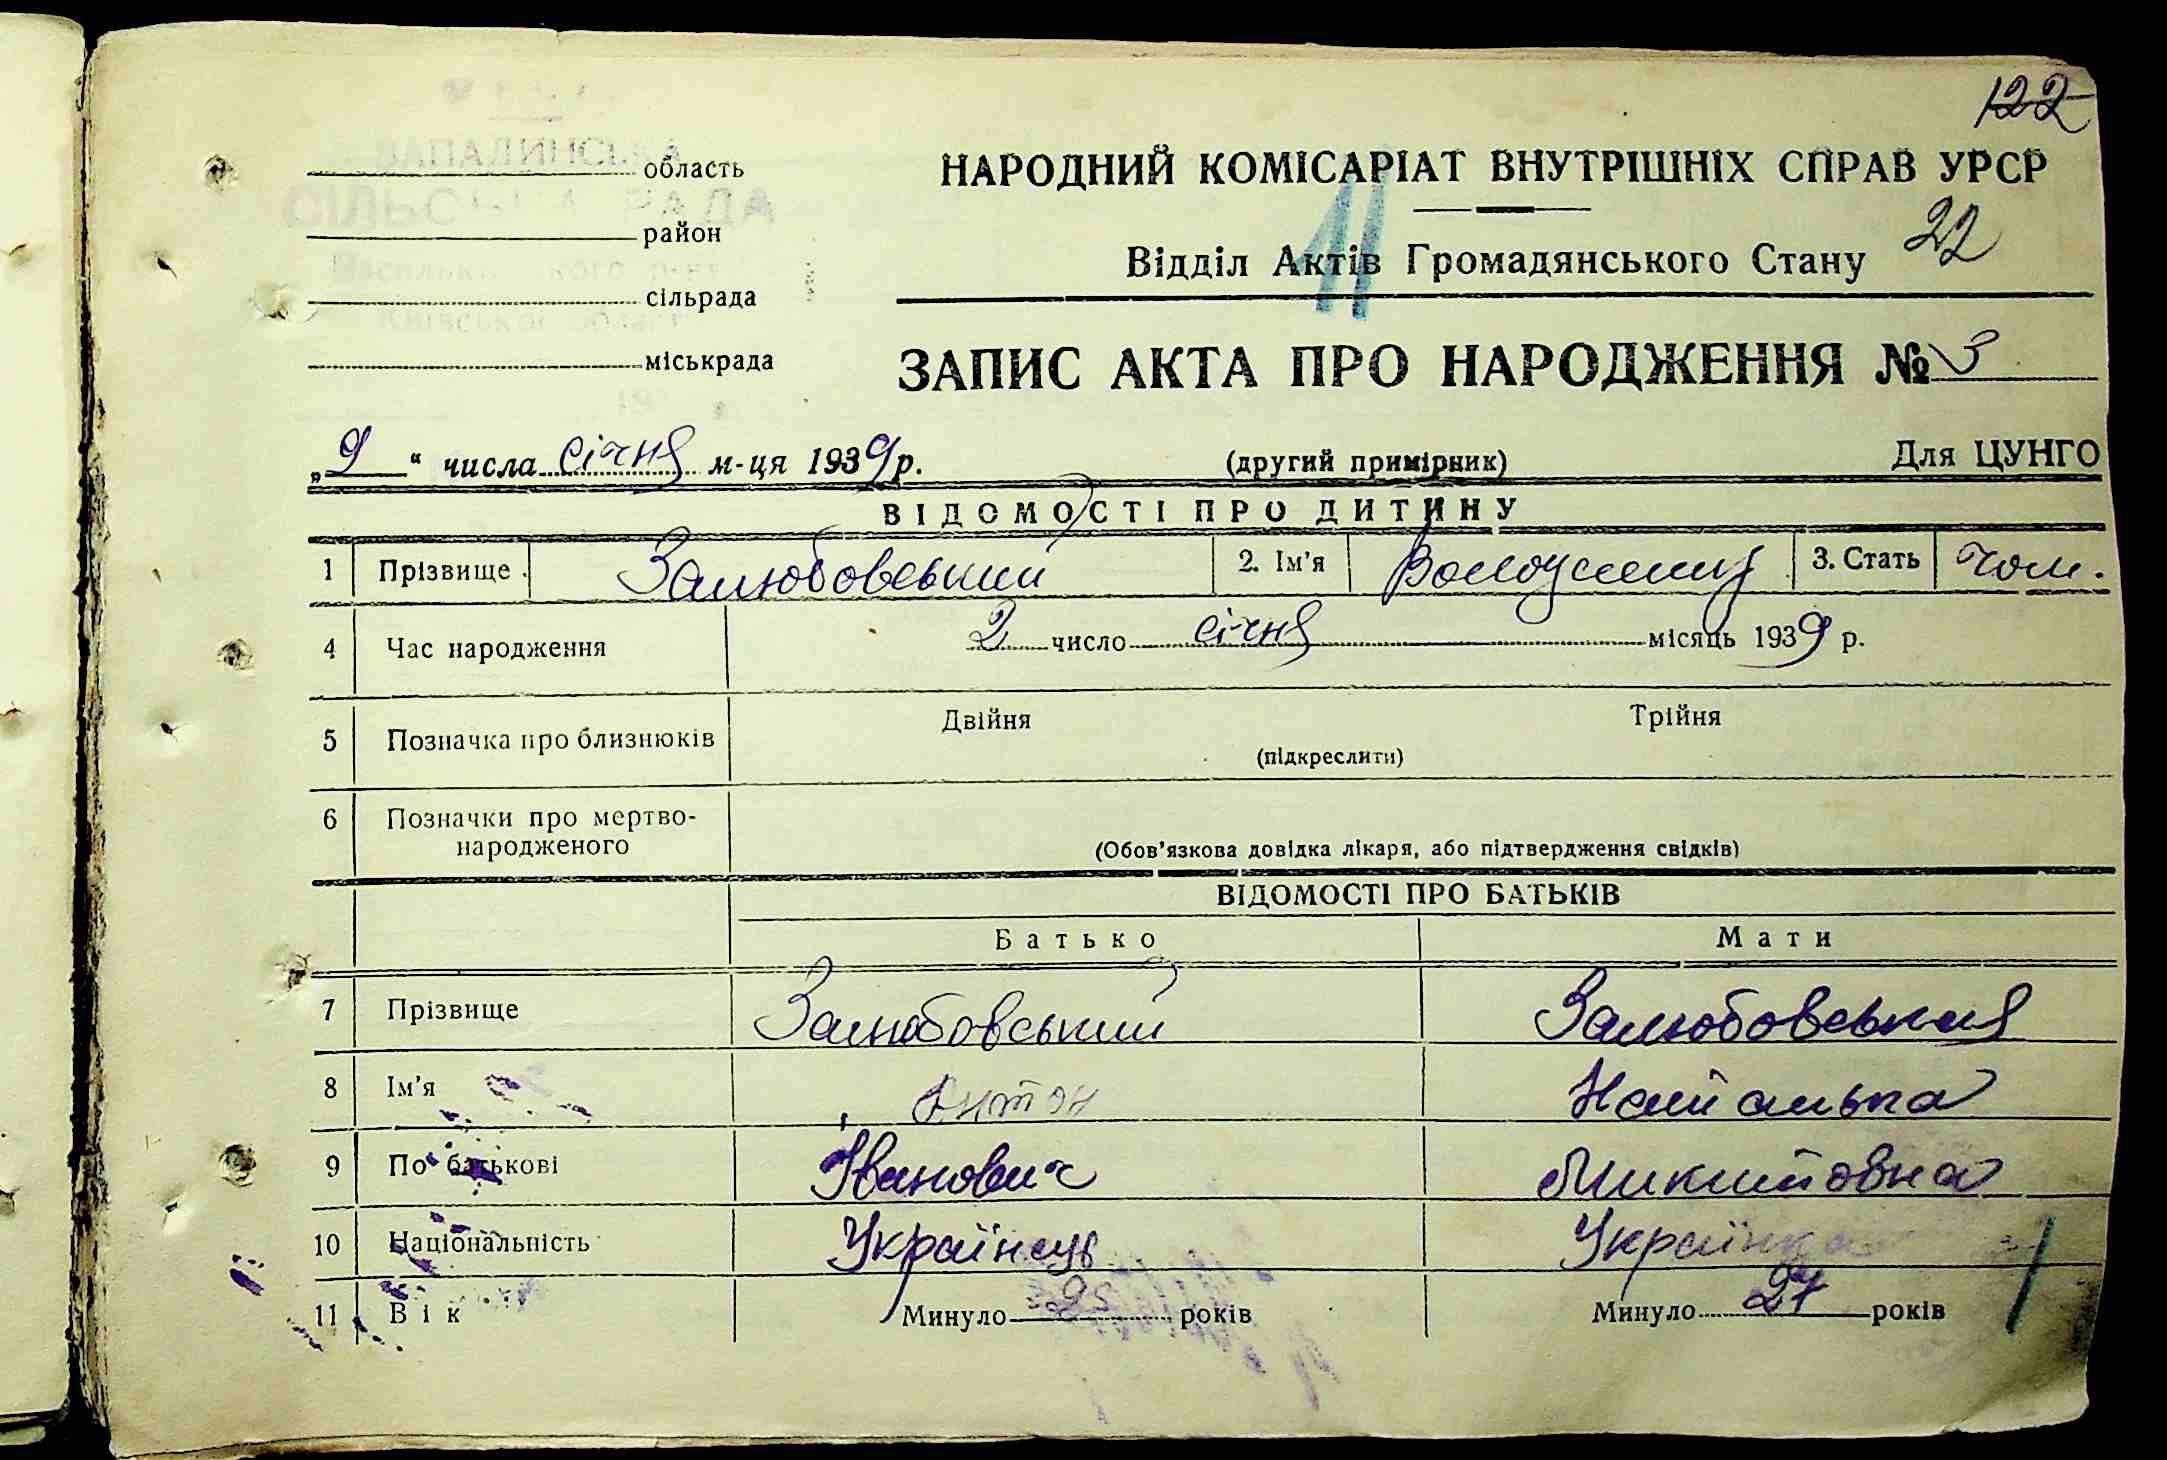 122
ЗАПАДИНСЬКА область
СІЛЬСЬКА РАДА
район
сільрада
міськрада
НАРОДНИЙ КОМІСАРІАТ ВНУТРІШНІХ СПРАВ УРСР
11
Відділ Актів Громадянського Стану 22
ЗАПИС АКТА ПРО НАРОДЖЕННЯ № 3
„9“ числа січня м-ця 1939 р. (другий примірник) Для ЦУНГО
ВІДОМОСТІ ПРО ДИТИНУ
1 Прізвище Залюбовський 2. Ім'я 3. Стать чол.
4 Час народження 2 число січня місяць 1939 р.
5 Позначка про близнюків Двійня Трійня
(підкреслити)
6 Позначки про мертво-
народженого (Обов'язкова довідка лікаря, або підтвердження свідків)
ВІДОМОСТІ ПРО БАТЬКІВ
Батько Мати
7 Прізвище Залюбовський Залюбовськая
8 Ім'я Антон Наталька
9 По батькові Іванович Микитовна
10 Національність Українець Українка
11 Вік Минуло років Минуло 27 років